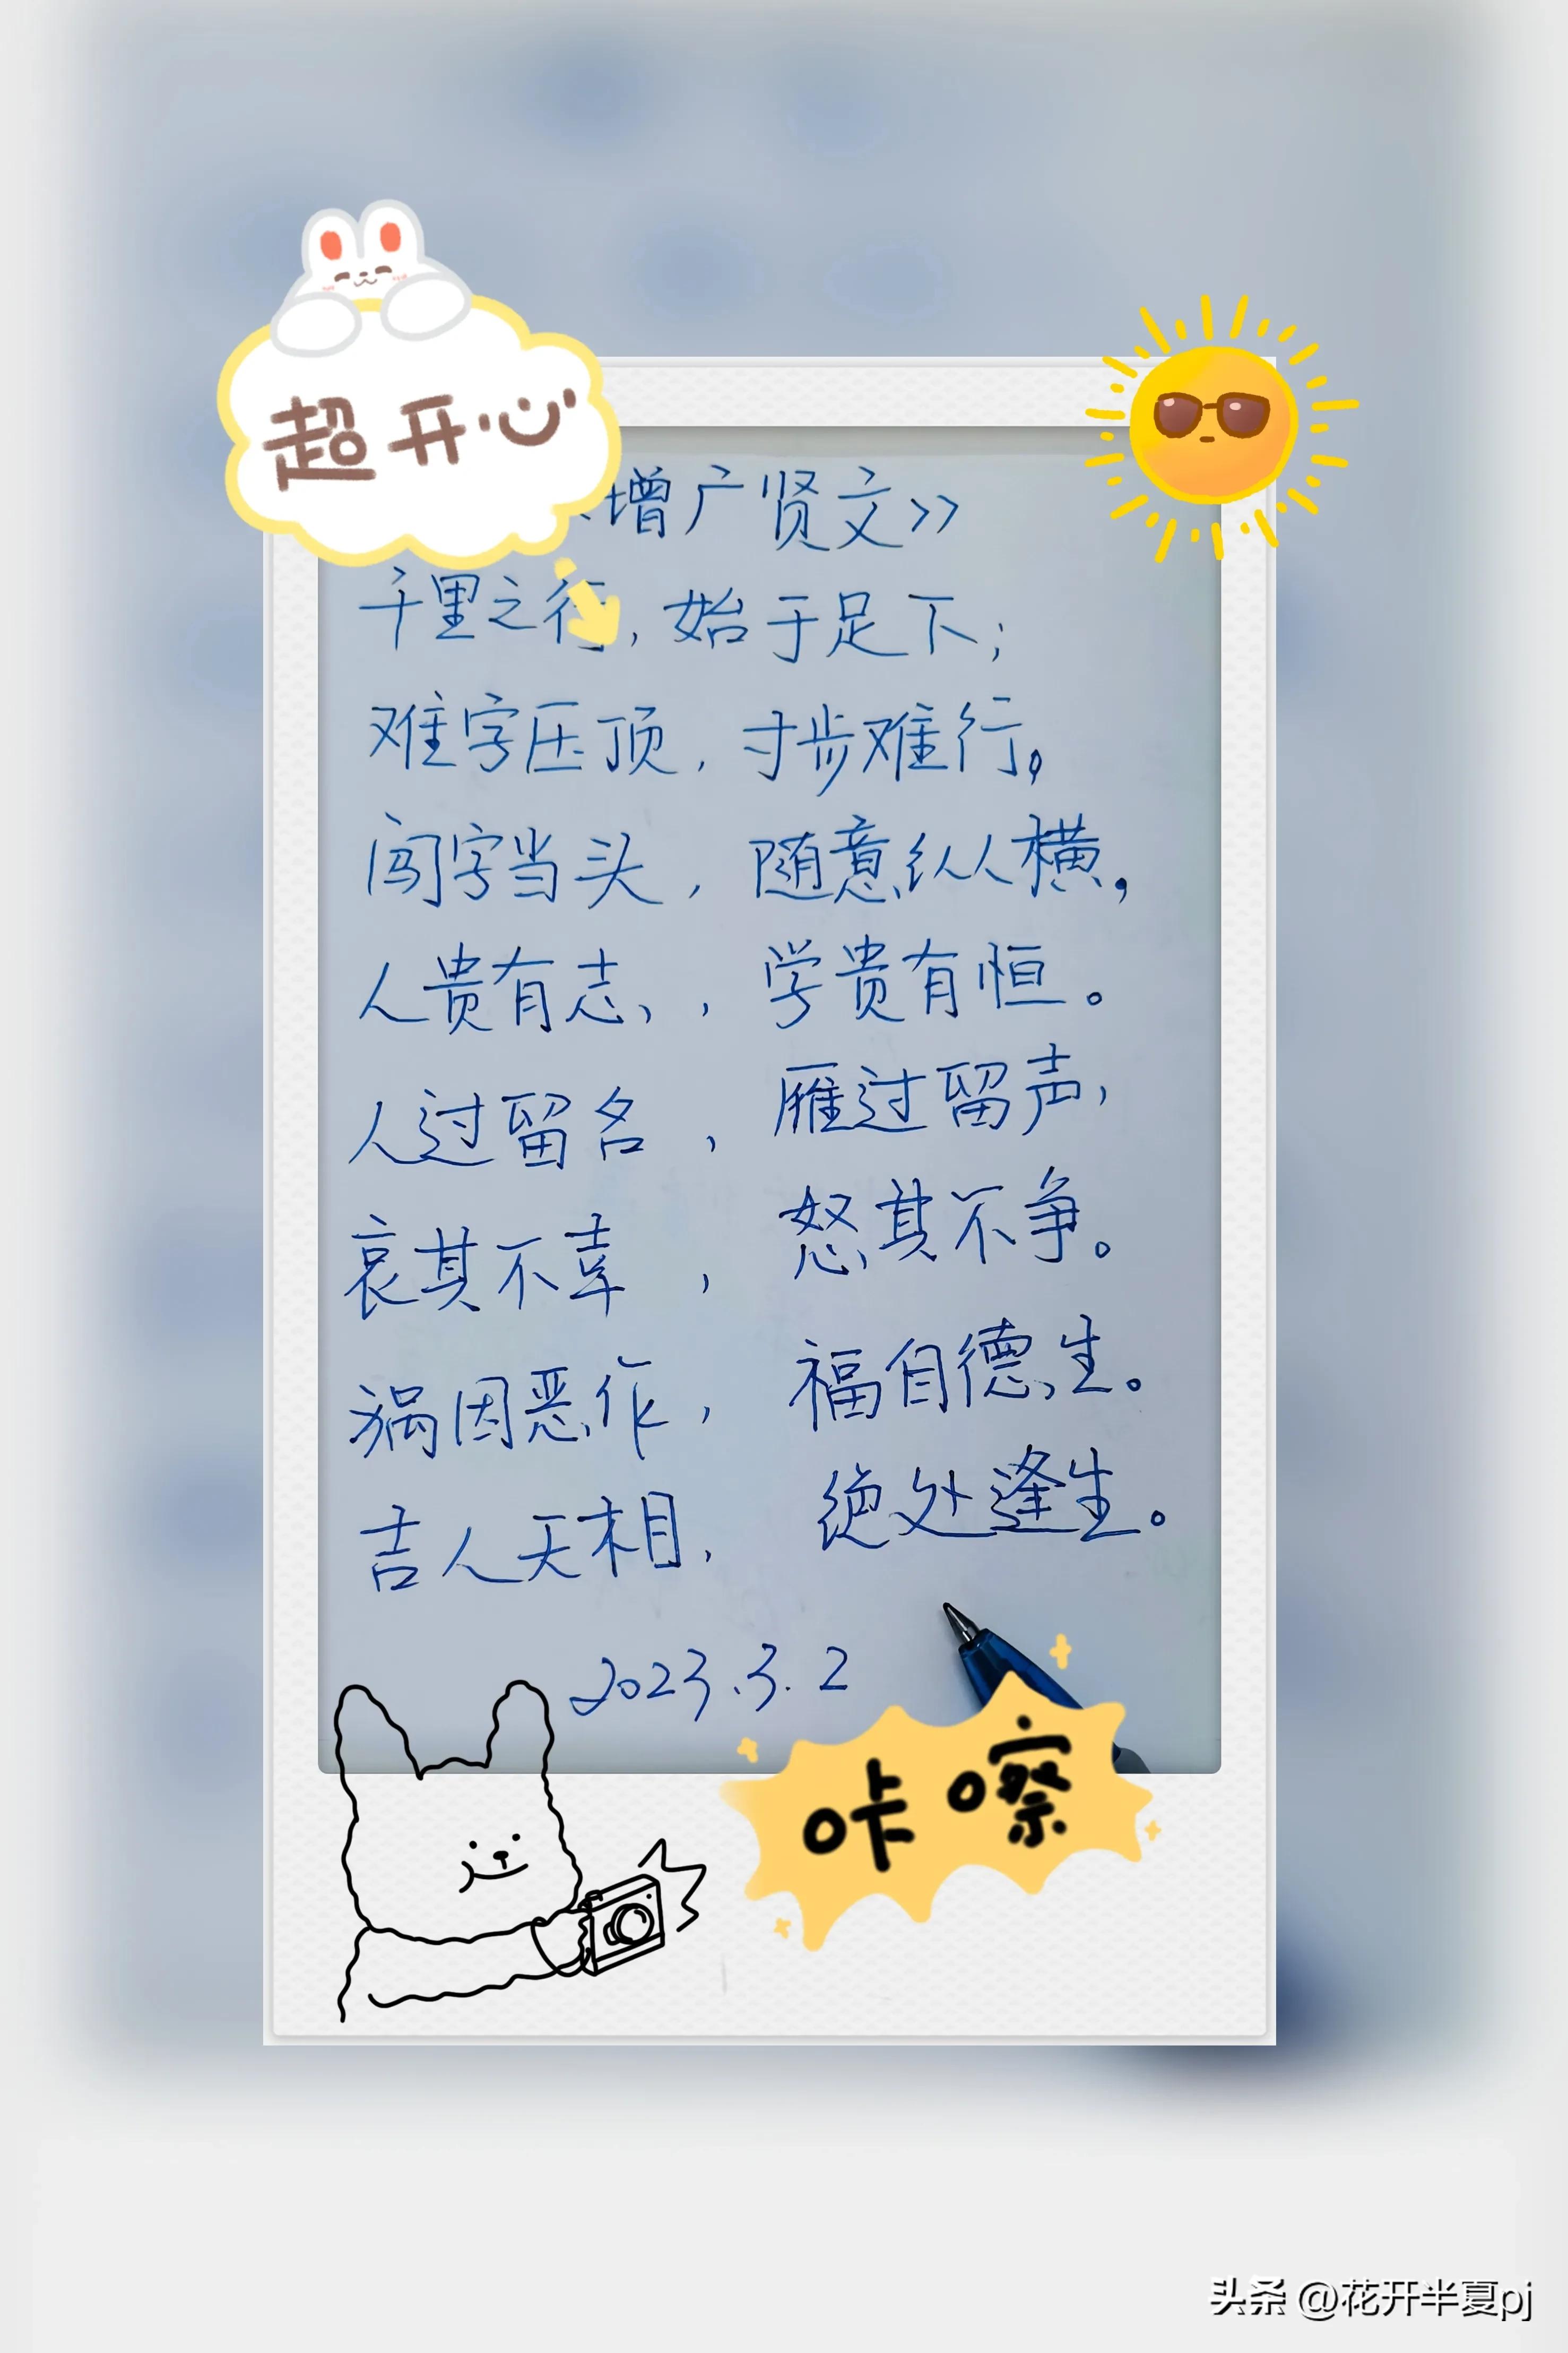 超开心
增广贤文》
千里之行，始于足下；
难字压顶，寸步难行。
闯字当头，随意纵横，
人贵有志，学贵有恒。
人过留名，雁过留声，
哀其不幸，怒其不争。
祸因恶作，福自德生。
吉人天相，绝处逢生。
2023.3.2
咔嚓
头条 @花开半夏pj